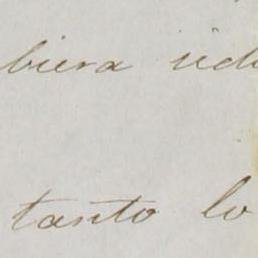 biera
tanto lo